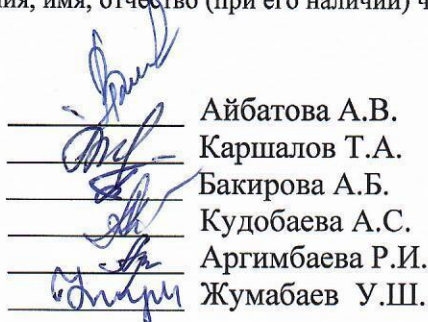 имя, отчество (при его наличии)
Айбатова А.В.
Каршалов Т.А.
Бакирова А.Б.
Кудобаева А.С.
Аргимбаева Р.И.
Жумабаев У.Ш.